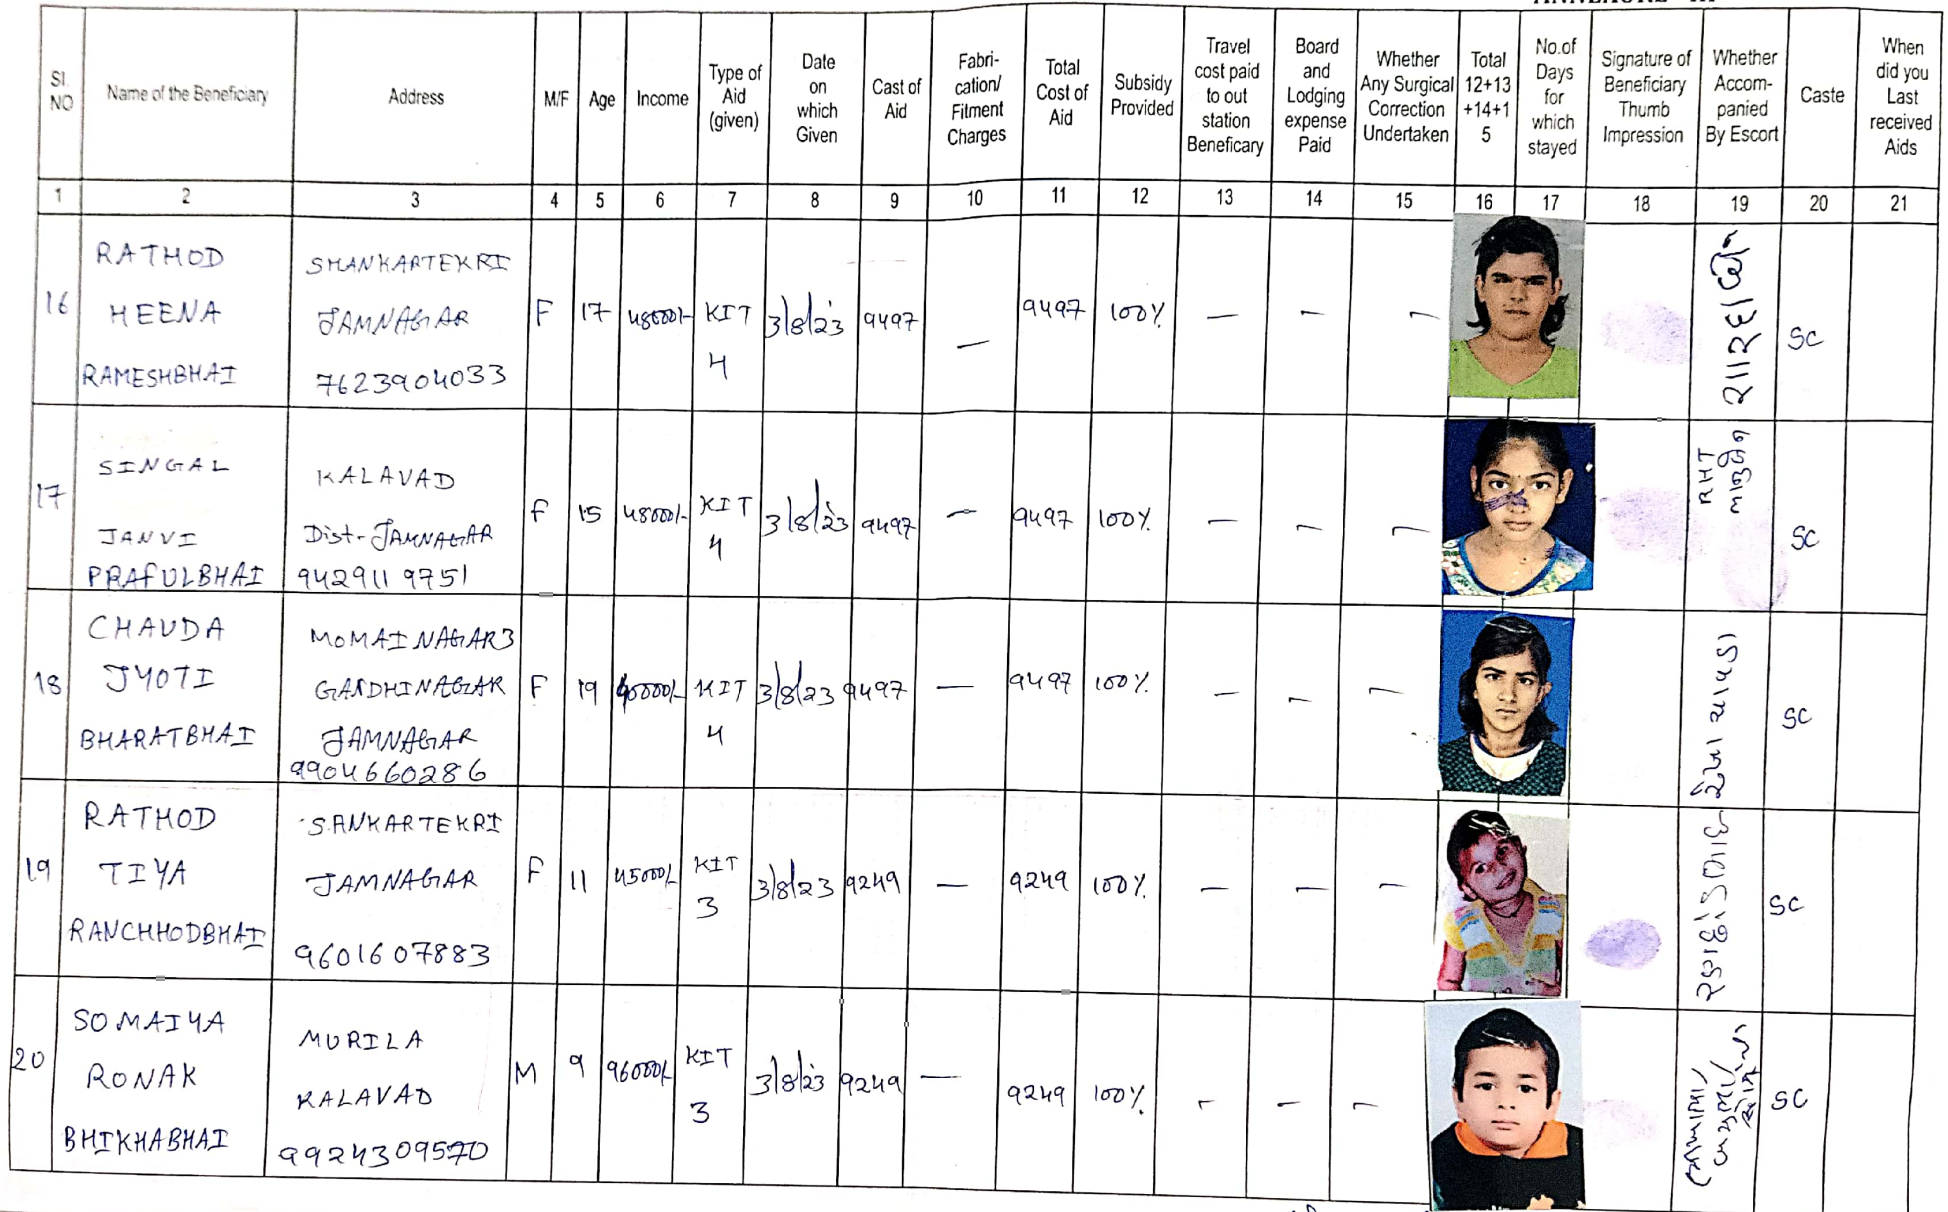 SI. NO
Name of the Beneficiary
Address
M/F
Age
Income
Type of Aid (given)
Date on which Given
Cast of Aid
Fabri-cation/ Fitment Charges
Total Cost of Aid
Subsidy Provided
Travel cost paid to out station Beneficary
Board and Lodging expense Paid
Whether Any Surgical Correction Undertaken
Total 12+13 +14+1 5
No.of Days for which stayed
Signature of Beneficiary Thumb Impression
Whether Accom-panied By Escort
Caste
When did you Last received Aids
1 2 3 4 5 6 7 8 9 10 11 12 13 14 15 16 17 18 19 20 21
16
RATHOD
HEENA
RAMESHBHAI
SHANKARTEKRI
JAMNAGAR
7623904033
F 17 48000/- KIT 4 3/8/23 9497 — 9497 100% — — — SC
17
SINGAL
JANVI
PRAFULBHAI
KALAVAD
Dist-JAMNAGAR
9429119751
F 15 48000/- KIT 4 3/8/23 9497 — 9497 100% — — — RHT SC
18
CHAUDA
JYOTI
BHARATBHAI
MOMAINAGAR3
GANDHINAGAR
JAMNAGAR
9904660286
F 19 40000/- KIT 4 3/8/23 9497 — 9497 100% — — — રેખા ચાવડા SC
19
RATHOD
TIYA
RANCHHODBHAI
SANKARTEKRI
JAMNAGAR
9601607883
F 11 45000/- KIT 3 3/8/23 9249 — 9249 100% — — — SC
20
SOMAIYA
RONAK
BHIKHABHAI
MURILA
KALAVAD
9924309570
M 9 96000/- KIT 3 3/8/23 9249 — 9249 100% — — — SC